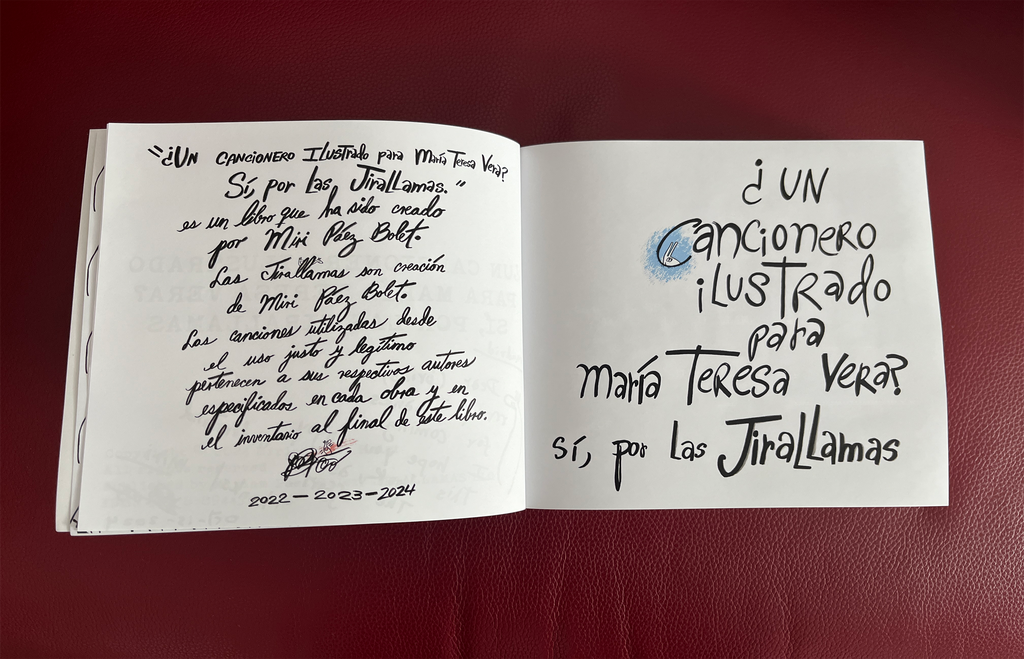 "¿UN CANCIONERO ILUSTRADO para María Teresa Vera?
Sí, por Las JiraLLamas."
es un libro que ha sido creado
por Miri Páez Bolet.
Las Jirallamas son creación
de Miri Páez Bolet.
Las canciones utilizadas desde
el uso justo y legítimo
pertenecen a sus respectivos autores
especificados en cada obra y en
el inventario al final de este libro.
2022-2023-2024
¿UN
Cancionero
iLUSTRado
para
María Teresa Vera?
Sí, por Las JiraLLamas